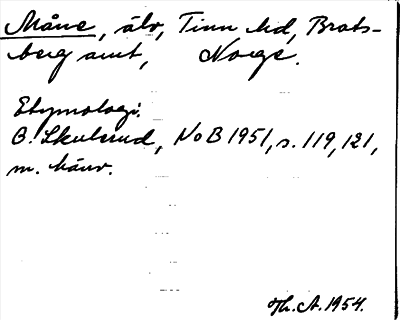 Måne, älv, Tinn hd, Brats-
berg amt, Norge.
Etymologi.
O. Skulerud, NoB 1951, s. 119, 121,
m. hänv.
Th. A. 1954.